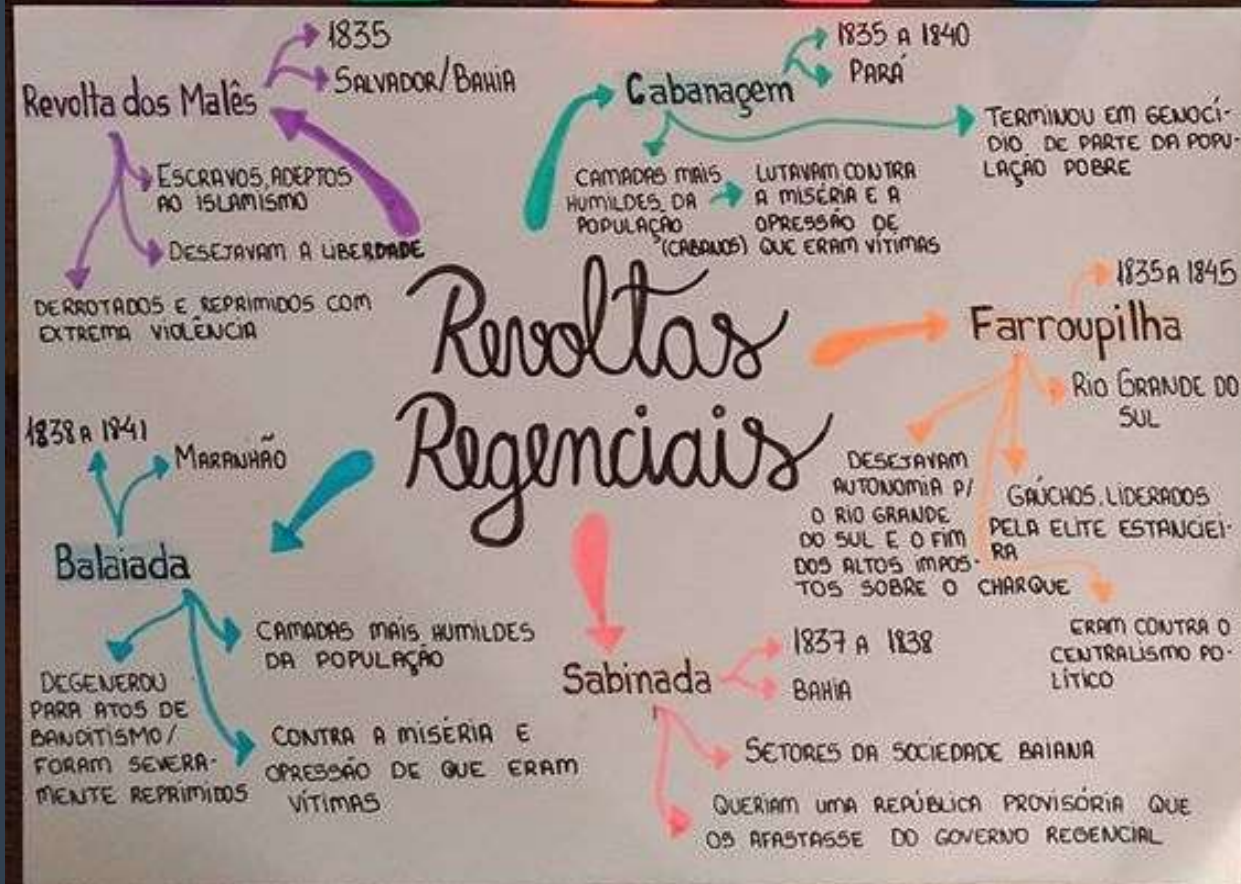 Revoltas
Regenciais
Revolta dos Malês
1835
SALVADOR/BAHIA
ESCRAVOS, ADEPTOS
AO ISLAMISMO
DESEJAVAM A LIBERDADE
DERROTADOS E REPRIMIDOS COM
EXTREMA VIOLÊNCIA
Cabanagem
1835 A 1840
PARÁ
TERMINOU EM GENOCÍ-
DIO DE PARTE DA POPU-
LAÇÃO POBRE
CAMADAS MAIS
HUMILDES DA
POPULAÇÃO
(CABANOS)
LUTAVAM CONTRA
A MISÉRIA E A
OPRESSÃO DE
QUE ERAM VÍTIMAS
Farroupilha
1835 A 1845
RIO GRANDE DO
SUL
DESEJAVAM
AUTONOMIA P/
O RIO GRANDE
DO SUL E O FIM
DOS ALTOS IMPOS-
TOS SOBRE O CHARQUE
GAÚCHOS, LIDERADOS
PELA ELITE ESTANCIEI-
RA
ERAM CONTRA O
CENTRALISMO PO-
LÍTICO
Balaiada
1838 A 1841
MARANHÃO
CAMADAS MAIS HUMILDES
DA POPULAÇÃO
DEGENEROU
PARA ATOS DE
BANDITISMO/
FORAM SEVERA-
MENTE REPRIMIDOS
CONTRA A MISÉRIA E
OPRESSÃO DE QUE ERAM
VÍTIMAS
Sabinada
1837 A 1838
BAHIA
SETORES DA SOCIEDADE BAIANA
QUERIAM UMA REPÚBLICA PROVISÓRIA QUE
OS AFASTASSE DO GOVERNO REGENCIAL